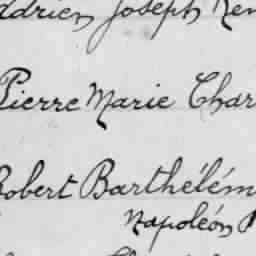 Adrien Joseph Ren
Pierre Marie Char
Robert Barthélém
Napoléon P